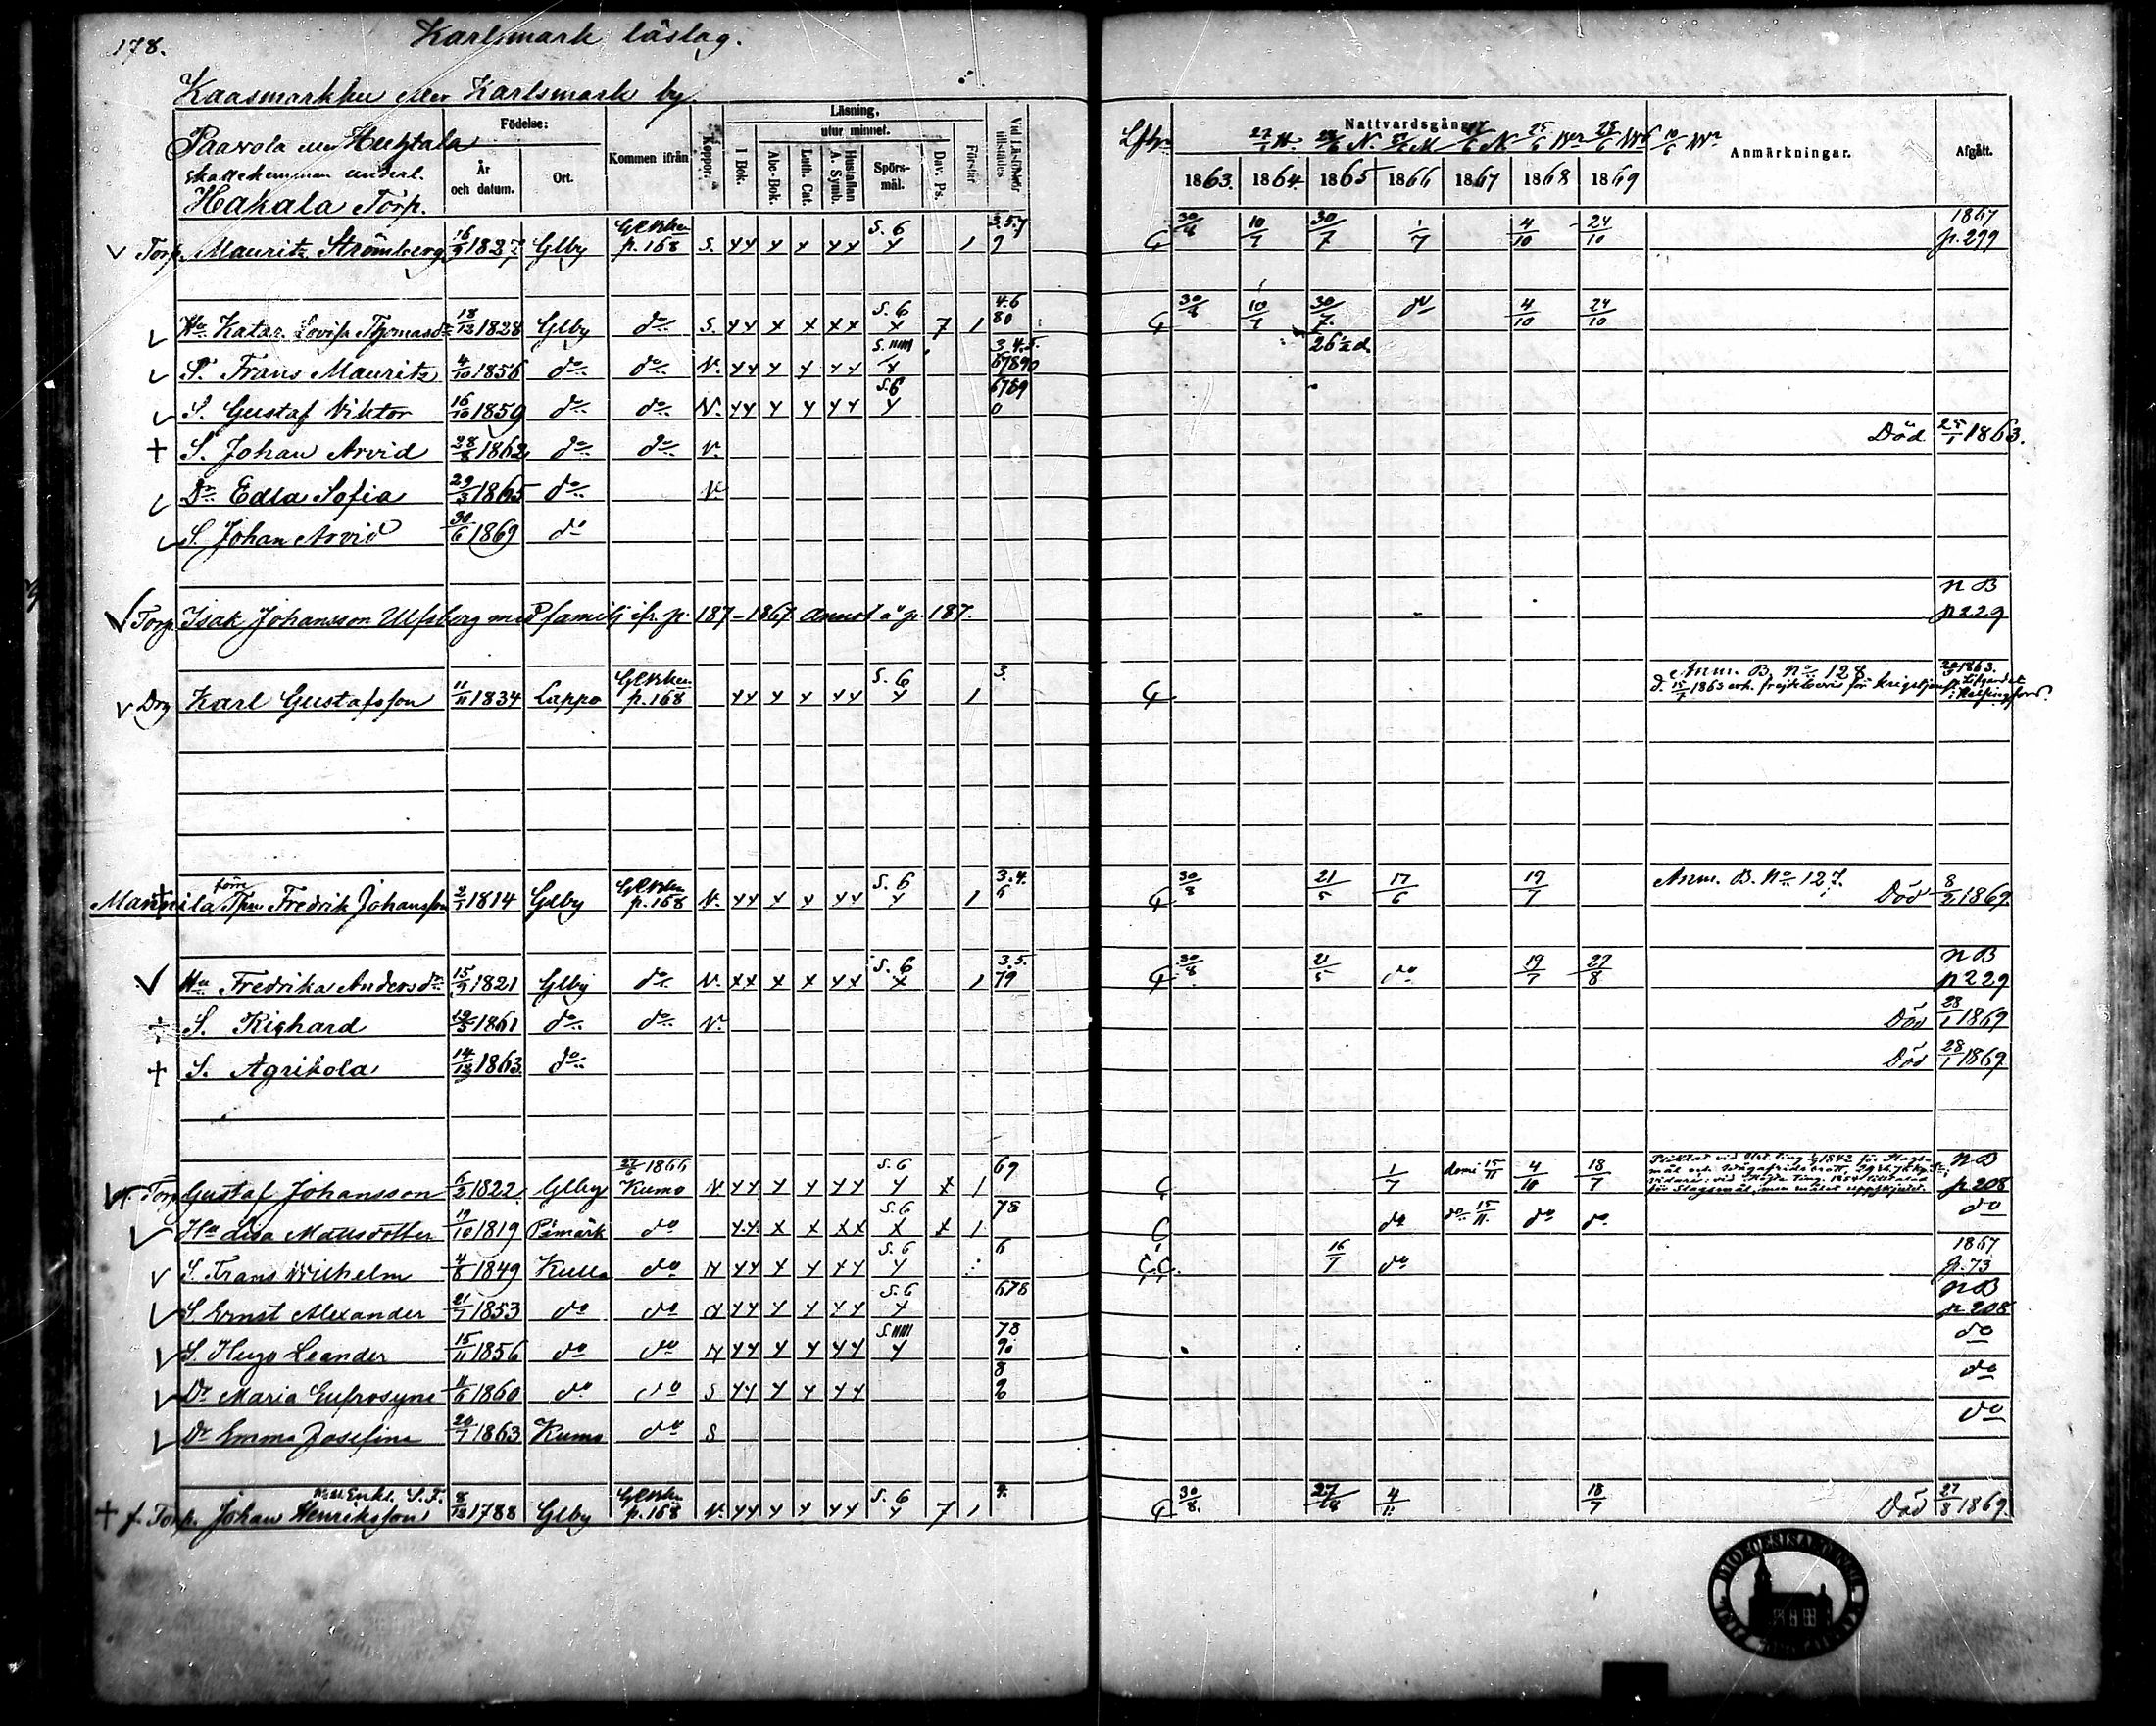 178.
Karlsmark läslag.
Kaasmarkku eller Karlsmark by.
Paavola eller Huhtala
skattehemman underl.
Hakala Torp.
Födelse:
År och datum.
Ort.
Kommen ifrån
Koppor.
Läsning,
utur minnet.
I Bok.
Abc-Bok.
Luth. Cat.
Hustaflan A. Symb.
Spörs-mål.
Dav. Ps.
Förstår
Vid Läsförhör tillstädes
Nattvardsgång
1863. 1864 1865 1866 1867 1868 1869
Anmärkningar.
Afgått.
Torp. Mauritz Strömberg 16/9 1827 Glby p. 168 S. S. 6 1 3.5.7 9 30/8 10/7 30/7 1/7 4/10 24/10 1867 p. 299
Hu Katar. Lovisa Thomasdr 18/12 1828 Glby do S. S. 6 7 1 4.6 80 30/8 10/7 30/7 do 4/10 24/10
26 1/2 d.
S. Frans Mauritz 4/10 1856 do do V. 3.4.5. 67890
S. Gustaf Viktor 16/10 1859 do do V. S. 6 6789 0
S. Johan Arvid 28/8 1862 do do V. Död 25/1 1863.
Dr Edla Sofia 29/3 1865 do V
S. Johan Arvid 30/6 1869 do
Torp. Isak Johansson Ulfsberg med familj ifr. p. 187 - 1867 annot å p. 187. NB p 229
Drg Karl Gustafsson 11/11 1834 Lappo p. 168 S. 6 1 3. Anm. B. No 128
d. 15/7 1863 erh. frejdebevis för krigstjenst 1863. i Helsingfors.
Mannila förre Torp. Fredrik Johansson 2/1 1814 Glby p. 168 V. S. 6 1 3.4. 6 30/8 21/5 17/6 19/7 Anm. B. No 127. Död 8/2 1869.
Hu Fredrika Andersdr 15/9 1821 Glby do V. S. 6 1 3.5. 79 30/8 21/5 do 19/7 27/8 NB p 229
S. Richard 19/5 1861 do do V. Död 28/1 1869
S. Agrikola 14/12 1863. do Död 28/1 1869.
Torp Gustaf Johansson 6/2 1822 Glby 27/6 1866 Kumo V S. 6 1 69 1/7 15/11 4/10 18/7 NB p. 208
Hu Lisa Mattsdotter 19/10 1819 Påmark do S. 6 1 78 do do 15/11. do do do
S. Frans Wilhelm 4/8 1849 Kulla do V S. 6 6 16/7 do 1867 p. 73
S. Ernst Alexander 21/7 1853 do do V S. 6 678 NB p 208
S. Hugo Leander 15/11 1856 do do V 78 90 do
Dr Maria Eufrosyne 11/6 1860 do do S 8 do
Dr Emma Josefina 20/7 1863 Kumo do S do
f. Torp. Johan Henriksson Enkl. 8/12 1788 Glby p. 168 V. S. 6 7 1 4. 30/8. 27/8 4/11 18/7 Död 27/8 1869.